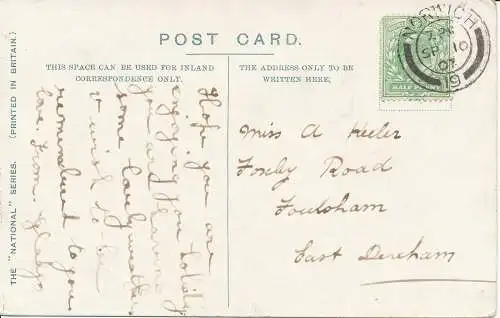 POST CARD.
THIS SPACE CAN BE USED FOR INLAND
CORRESPONDENCE ONLY.
THE ADDRESS ONLY TO BE
WRITTEN HERE.
THE "NATIONAL" SERIES. (PRINTED IN BRITAIN.)
NORWICH
SP 10
07
19
HALF PENNY
Hope you are
enjoying your holiday
you are having
some lovely weather
I wish to be
remembered to you
love from Gladys
Miss A Keeler
Foxley Road
Foulsham
East Dereham